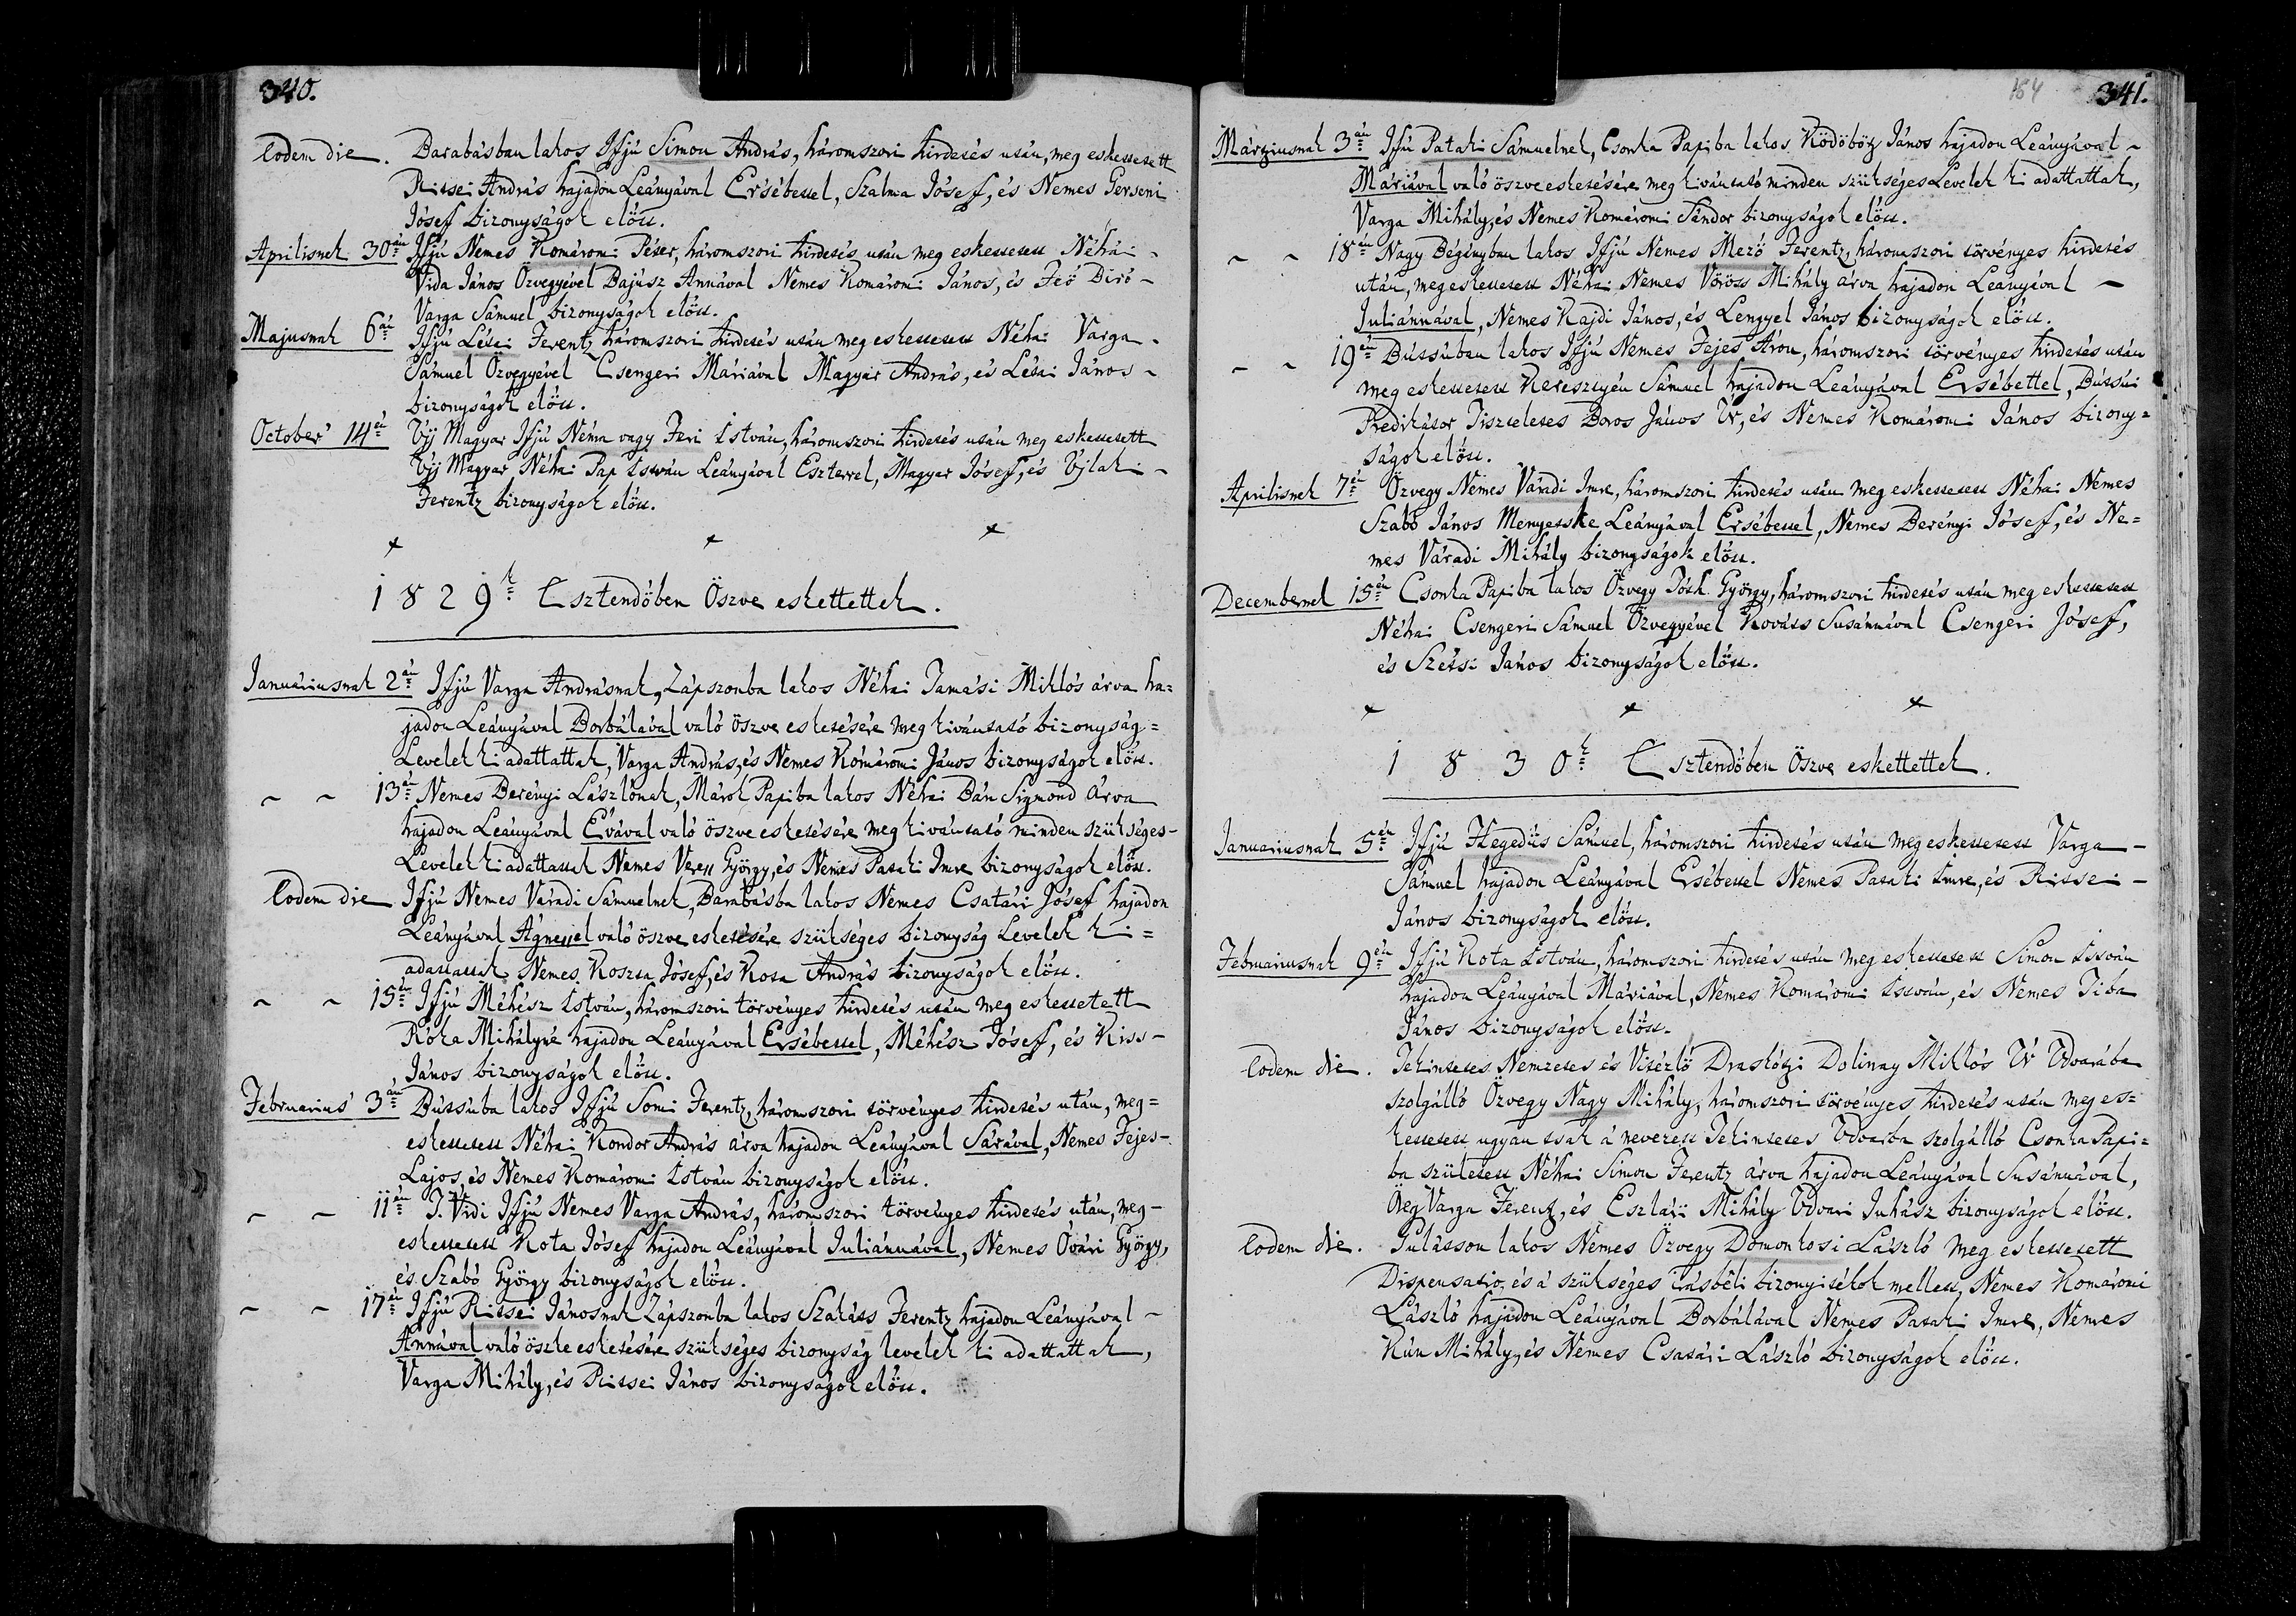 340.
Eodem die. Barabásban lakos Ifjú Simon András, háromszori hirdetés után, meg eskettetett
Ritsei András hajadon Leányával Ersébettel, Szalma Jósef, és Nemes Gerseni
Jósef bizonyságok elött.
Aprilisnek 30án Ifjú Nemes Komáromi Péter, háromszori hirdetés után meg eskettetett Néhai -
Vida János Özvegyével Bajusz Annával Nemes Komáromi János, és Feö Biró -
Varga Sámuel bizonyságok elött.
Majusnak 6án Ifjú Létai Ferentz háromszori hirdetés után meg eskettetett Néhai Varga -
Sámuel Özvegyével Csengeri Máriával Magyar András, és Létai János -
bizonyságok elött.
October' 14én Uj Magyar Ifjú Néma vagy Feri István, háromszori hirdetés után meg eskettetett
Uj Magyar Néhai Pap István Leányával Eszterrel, Magyar Jósef, és Ujlaki -
Ferentz bizonyságok elött.
1829k Esztendöben Öszve eskettettek.
Januáriusnak 2án Ifjú Varga Andrásnak, Zápszonba lakos Néhai Tamási Miklós árva ha=
jadon Leányával Borbálával való öszve esketésére meg kivántató bizonyság=
Levelek ki adattattak, Varga András, és Nemes Komáromi János bizonyságok elött.
~ ~ 13án Nemes Berényi Lászlónak, Márok Papiba lakos Néhai Bán Sigmond árva
hajadon Leányával Évával való öszve esketésére meg kivántató minden szükséges-
Levelek ki adattattak Nemes Veres György, és Nemes Pataki Imre bizonyságok elött.
Eodem die Ifjú Nemes Váradi Sámuelnek, Barabásba lakos Nemes Csatári Jósef hajadon
Leányával Ágnessel való öszve esketésére szükséges bizonyság Levelek ki=
adattattak Nemes Koszta Jósef, és Kota András bizonyságok elött.
~ ~ 15én Ifjú Méhész István, háromszori törvényes hirdetés után meg eskettetett
Róka Mihályné hajadon Leányával Ersébettel, Méhész Jósef, és Kiss-
János bizonyságok elött.
Februarius' 3án Bútsúba lakos Ifjú Somi Ferentz, háromszori törvényes hirdetés után, meg=
eskettetett Néhai Kondor András árva hajadon Leányával Sárával, Nemes Fejes-
Lajos, és Nemes Komáromi István bizonyságok elött.
~ ~ 11én T. Vidi Ifjú Nemes Varga András, háromszori törvényes hirdetés után, meg-
eskettetett Kota Jósef hajadon Leányával Juliánnával, Nemes Óvári György,
és Szabó György bizonyságok elött.
~ ~ 17én Ifjú Ritsei Jánosnak Zápszonba lakos Szakáts Ferentz hajadon Leányával -
Annával való öszke esketésére szükséges bizonyság levelek ki adattattak,
Varga Mihály, és Ritsei János bizonyságok elött.
164 341.
Mártziusnak 3án Ifjú Pataki Sámuelnek, Csonka Papiba lakos Ködöbötz János hajadon Leányával -
Máriával való öszve esketésére meg kivántató minden szükséges Levelek ki adattattak,
Varga Mihály, és Nemes Komáromi Sándor bizonyságok elött.
~ ~ 18án Nagy Bégányban lakos Ifjú Nemes Mezö Ferentz, háromszori törvényes hirdetés
után, meg eskettetett Néhai Nemes Vöröss Mihály árva hajadon Leányával -
Juliánnával, Nemes Kajdi János, és Lengyel János bizonyságok elött.
~ ~ 19én Bútsúban lakos Ifjú Nemes Fejes Áron, háromszori törvényes hirdetés után
meg eskettetett Keresztyén Sámuel hajadon Leányával Ersébettel, Bútsúi
Predikátor Tiszteletes Boros János Úr, és Nemes Komáromi János bizony=
ságok elött.
Aprilisnek 7én Özvegy Nemes Váradi Imre, háromszori hirdetés után meg eskettetett Néhai Nemes
Szabó János Menyetske Leányával Ersébettel, Nemes Berényi Jósef, és Ne=
mes Váradi Mihály bizonyságok elött.
Decembernek 15én Csonka Papiba lakos Özvegy Tóth György, háromszori hirdetés után meg eskettetett
Néhai Csengeri Sámuel Özvegyével Kováts Susánnával Csengeri Jósef,
és Szétsi János bizonyságok elött.
1830k Esztendöben Öszve eskettettek.
Januariusnak 5én Ifjú Hegedüs Sámuel, háromszori hirdetés után meg eskettetett Varga -
Sámuel hajadon Leányával Ersébettel Nemes Pataki Imre, és Ritsei -
János bizonyságok elött.
Februáriusnak 9én Ifjú Kota István, háromszori hirdetés után meg eskettetett Simon István
hajadon Leányával Máriával, Nemes Komáromi István, és Nemes Tiba
János bizonyságok elött.
Eodem die. Tekintetes Nemzetes és Vitézlö Draskótzi Dolinay Miklós Úr Udvarába
szolgálló Özvegy Nagy Mihály, háromszori törvényes hirdetés után meg es=
kettetett ugyan tsak á nevezett Tekintetes Udvarba szolgálló Csonka Papi=
ba született Néhai Simon Ferentz árva hajadon Leányával Susánnával,
Öreg Varga Ferentz, és Eszlári Mihály Udvari Juhász bizonyságok elött.
Eodem die. Gulátson lakos Nemes Özvegy Domonkosi László meg eskettetett
Dispensatio, és á szükséges irásbéli bizonyitékok mellett, Nemes Komáromi
László hajadon Leányával Borbálával Nemes Pataki Imre, Nemes
Kún Mihály, és Nemes Csatári László bizonyságok elött.